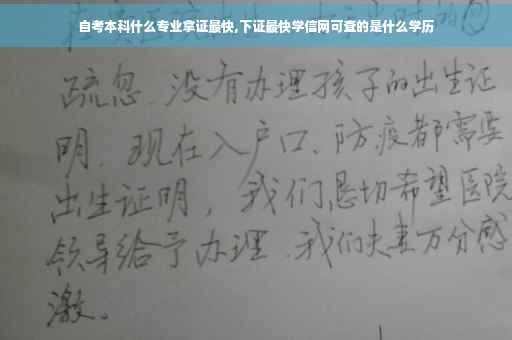 自考本科什么专业拿证最快,下证最快学信网可查的是什么学历
疏忽、没有办理孩子的出生证
明、现在入户口、防疫都需要
出生证明，我们恳切希望医院
领导给予办理、我们夫妻万分感
激。